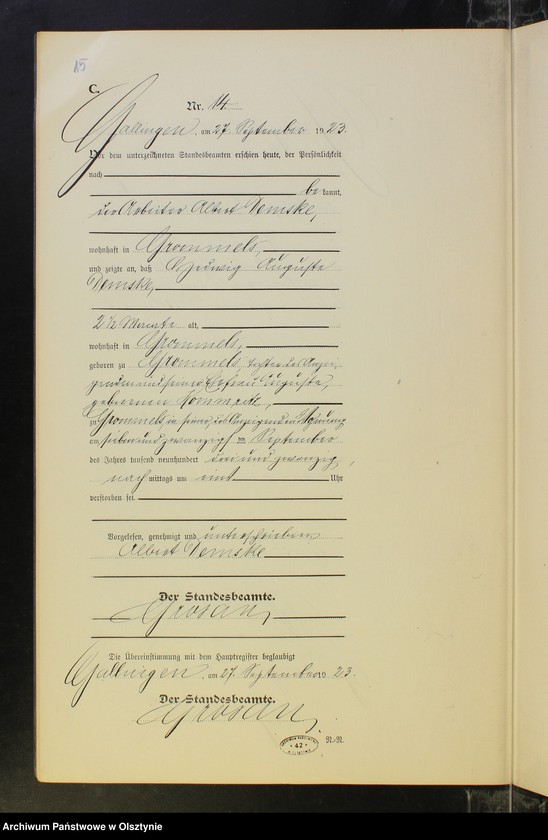 15
C.
Nr. 14
Gallingen, am 27. September 1923.
Vor dem unterzeichneten Standesbeamten erschien heute, der Persönlichkeit
nach
bekannt,
der Arbeiter Albert Demske,
wohnhaft in Grommels,
und zeigte an, daß Hedwig Auguste
Demske,
2½ Monate alt,
wohnhaft in Grommels,
geboren zu Grommels, Tochter des Anzei-
genden und seiner Ehefrau Auguste,
geborenen
zu Grommels, in seiner, des Anzeigenden Wohnung
am sieben und zwanzigsten September
des Jahres tausend neunhundert drei und zwanzig,
nachmittags um eins Uhr
verstorben sei.
Vorgelesen, genehmigt und unterschrieben
Albert Demske
Der Standesbeamte.
Die Übereinstimmung mit dem Hauptregister beglaubigt
Gallingen, am 27. September 1923.
Der Standesbeamte.
42
Archiwum Państwowe w Olsztynie